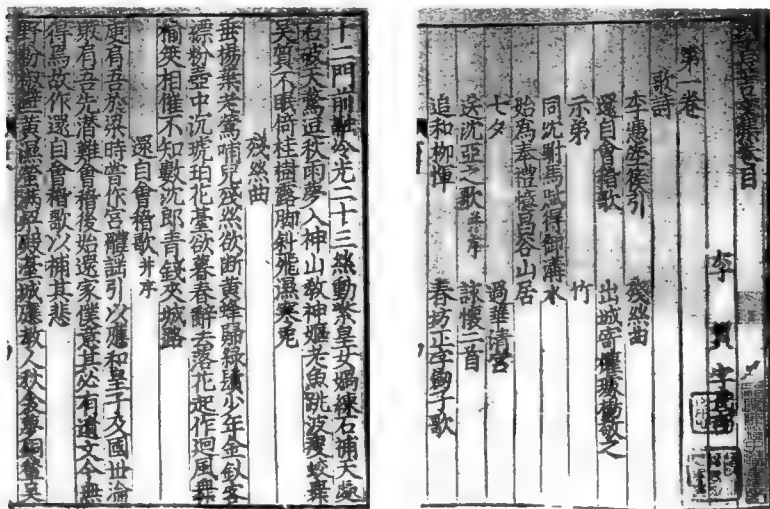 長吉文集卷目
李賀字長吉
第一卷
歌詩
李憑箜篌引　殘絲曲
還自會稽歌　出城寄權璩楊敬之
示弟　竹
同沈駙馬賦得御溝水
始為奉禮憶昌谷山居
七夕　過華清宮
送沈亞之歌并序　詠懷二首
追和柳惲　春坊正字劒子歌
十二門前融冷光二十三絲動紫皇女媧鍊石補天處
石破天驚逗秋雨夢入神山敎神嫗老魚跳波瘦蛟舞
吳質不眠倚桂樹露脚斜飛濕寒兔
殘絲曲
垂楊葉老鶯哺兒殘絲欲斷黃蜂歸綠鬢少年金釵客
縹粉壺中沉琥珀花臺欲暮春辭去落花起作迴風舞
榆莢相催不知數沈郎青錢夾城路
還自會稽歌并序
庾肩吾於梁時嘗作宮體謠引以應和皇子及國世淪
敗肩吾先潛難會稽後始還家僕意其必有遺文今無
得焉故作還自會稽歌以補其悲
野粉椒壁黃濕螢滿梁殿臺城應敎人秋衾夢銅輦吳